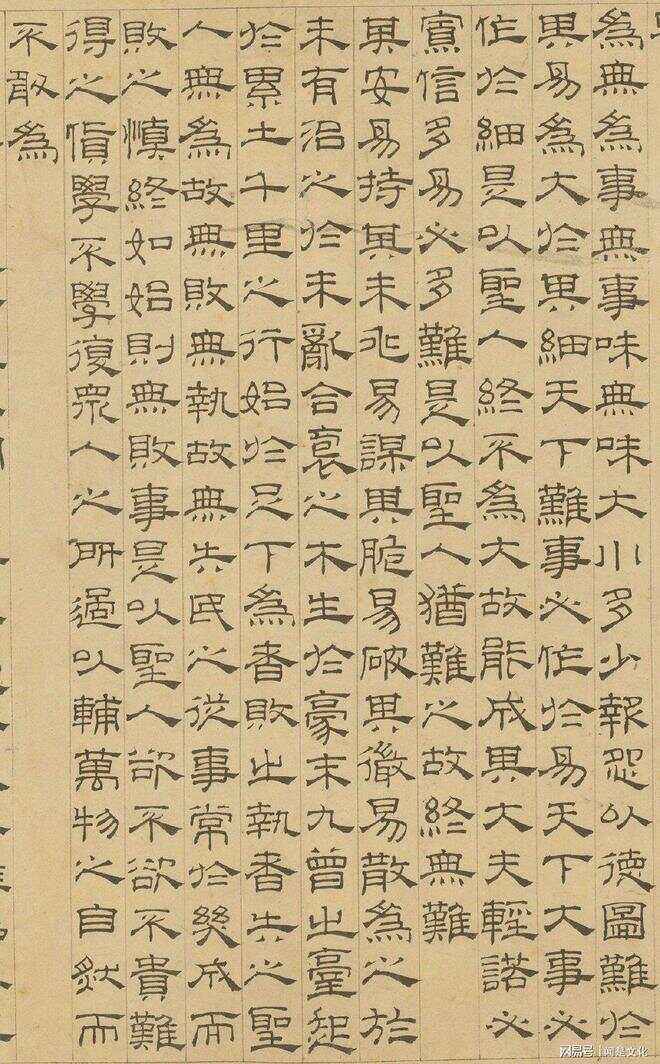 為無為事無事味無味大小多少報怨以德圖難於
其易為大於其細天下難事必作於易天下大事必
作於細是以聖人終不為大故能成其大夫輕諾必
寡信多易必多難是以聖人猶難之故終無難
其安易持其未兆易謀其脆易破其微易散為之於
未有治之於未亂合袌之木生於豪末九曾之臺起
於累土千里之行始於足下為者敗之執者失之聖
人無為故無敗無執故無失民之從事常於幾成而
敗之慎終如始則無敗事是以聖人欲不欲不貴難
得之貨學不學復眾人之所過以輔萬物之自然而
不敢為
网易号 | 闻是文化